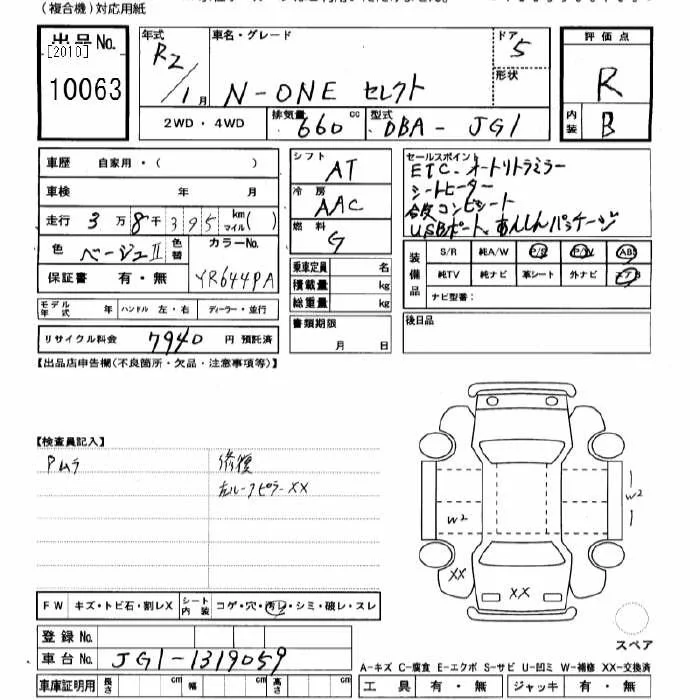 (複合機)対応用紙
出品No.
[2010]
10063
年式
R2/1月
車名・グレード
N-ONE セレクト
ドア
5
形状
評価点
R
内装
B
2WD・4WD
排気量
660cc
型式
DBA-JG1
車歴 自家用・( )
車検 年 月
走行 3万8千395 km マイル( )
色 ベージュII
色替
カラーNo.
YR644PA
保証書 有・無
モデル年式 年 ハンドル 左・右 ディーラー・並行
リサイクル料金 7940円 預託済
シフト
AT
冷房
AAC
燃料
G
乗車定員 名
積載量 kg
総重量 kg
書類期限
月 日
セールスポイント
ETC・オートリトラミラー
シートヒーター
合皮コンビシート
USBポート、あんしんパッケージ
装備品
S/R 純A/W P/S P/W ABS
純TV 純ナビ 革シート 外ナビ エアB
ナビ型番:
後日品
【出品店申告欄(不良箇所・欠品・注意事項等)】
【検査員記入】
Pムラ
修復
左ルーフピラーXX
W2
W2
XX
XX
スペア
FW キズ・トビ石・割レX
シート内装 コゲ・穴・汚レ・シミ・破レ・スレ
登録No.
車台No. JG1-1319059
車庫証明用 長さ cm 幅 cm 高さ cm
A-キズ C-腐食 E-エクボ S-サビ U-凹ミ W-補修 XX-交換済
工具 有・無 ジャッキ 有・無